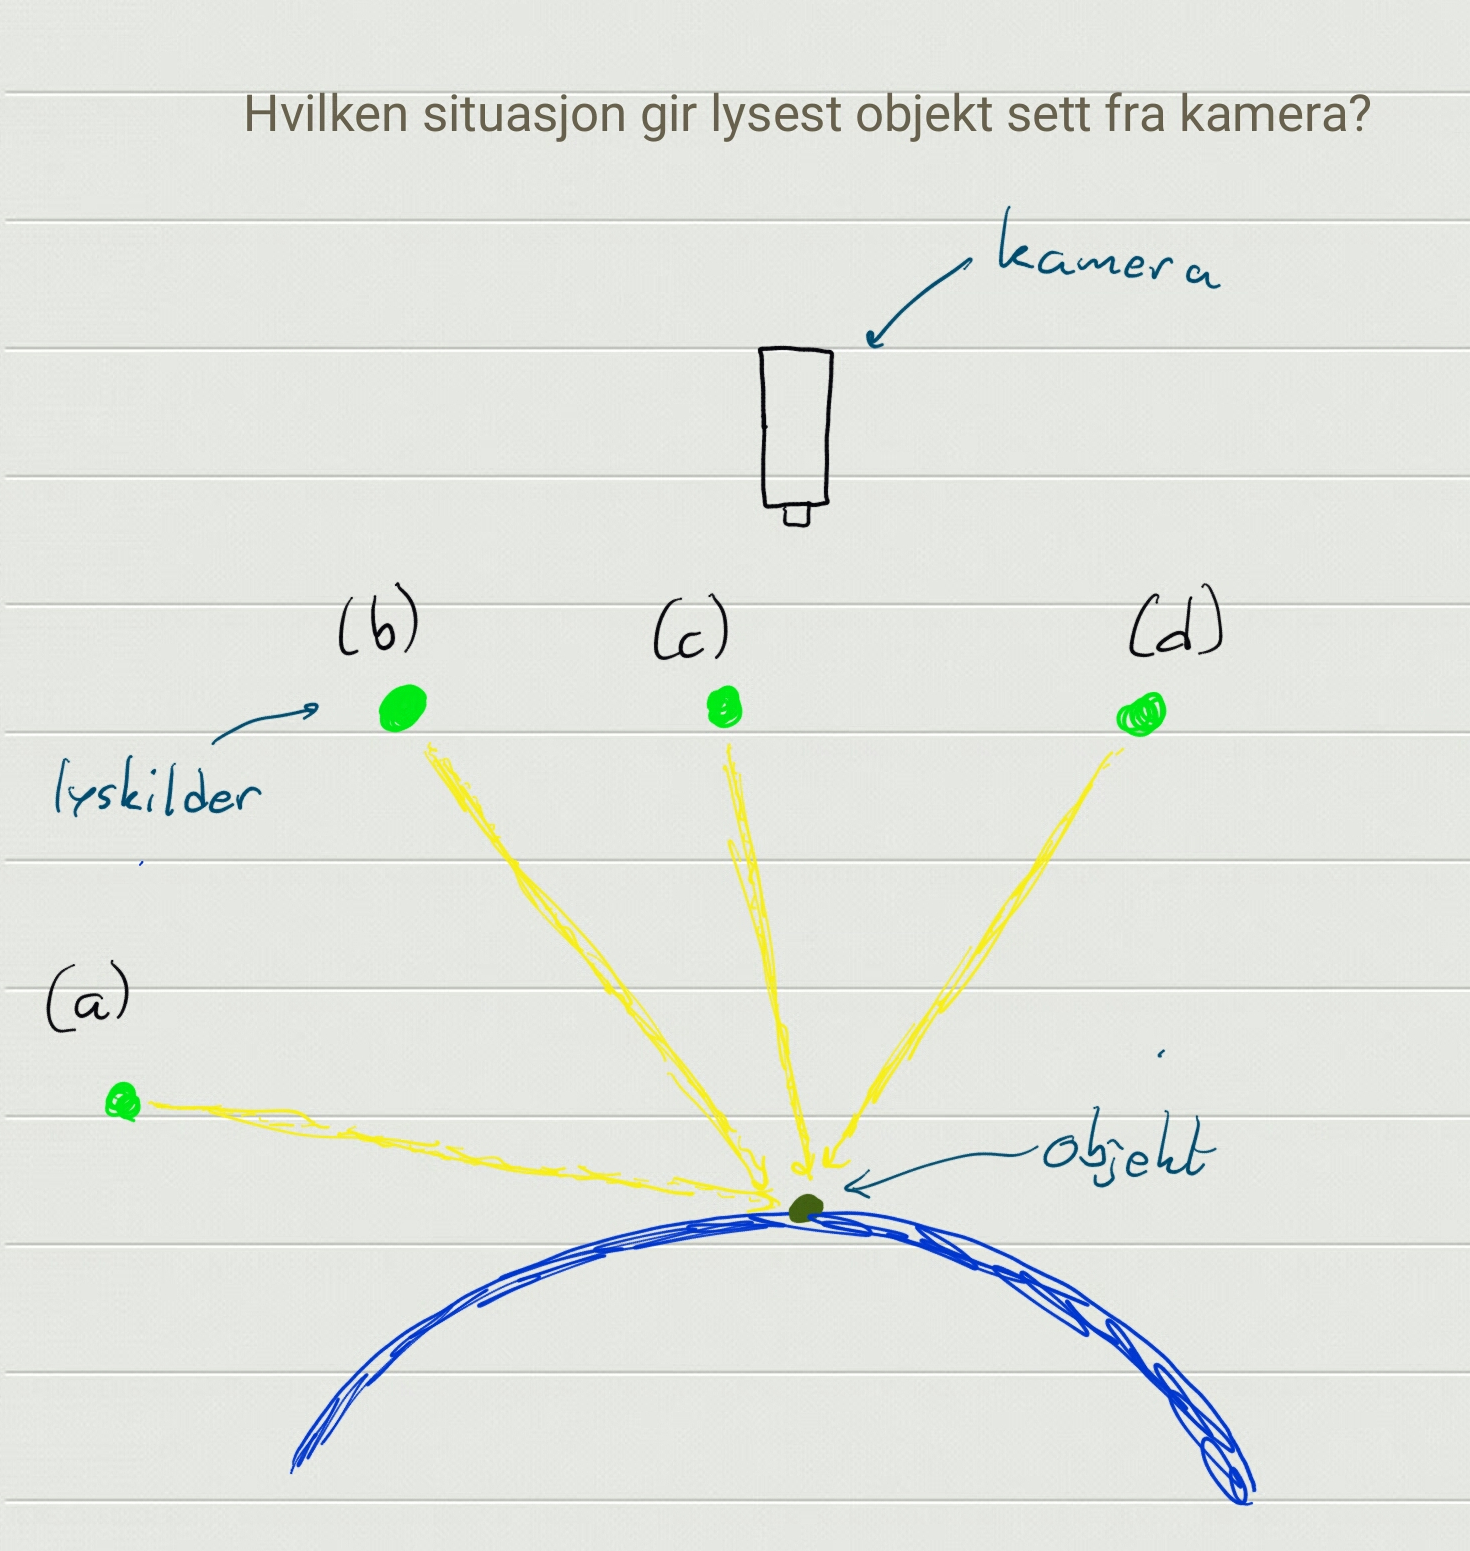 Hvilken situasjon gir lysest objekt sett fra kamera?
kamera
(b)
(c)
(d)
lyskilder
(a)
objekt